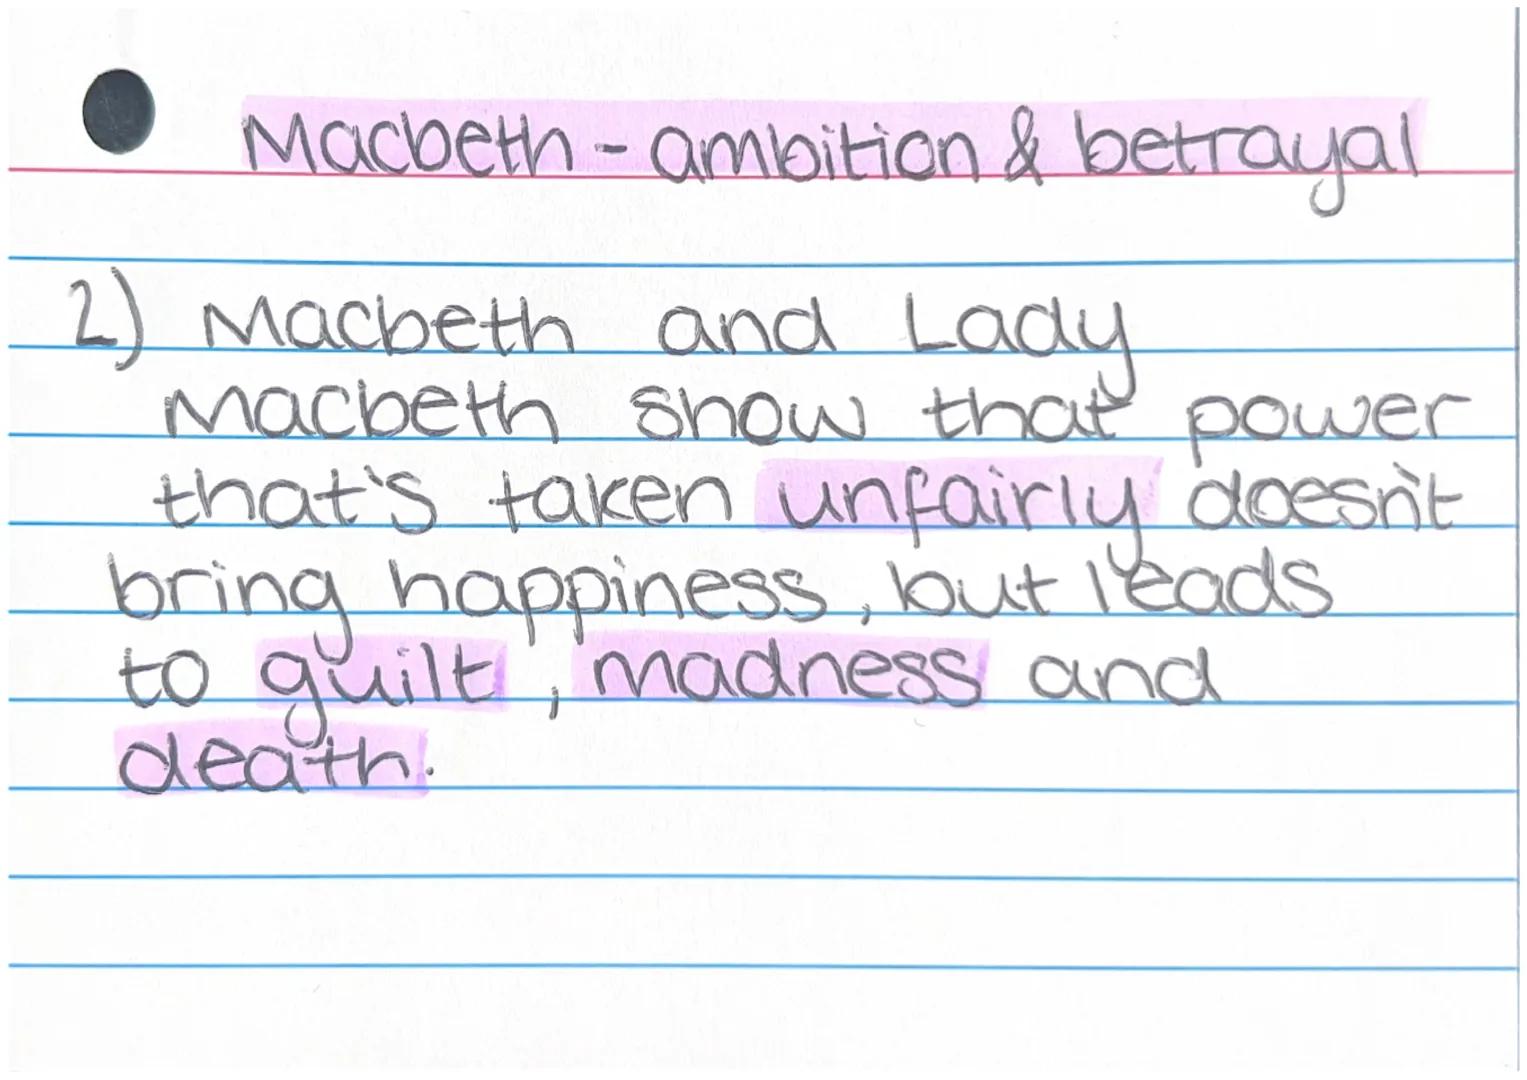 Macbeth - ambition & betrayal
2) Macbeth and Lady
Macbeth show that power
that's taken unfairly doesn't
bring happiness, but leads
to guilt, madness and
death.